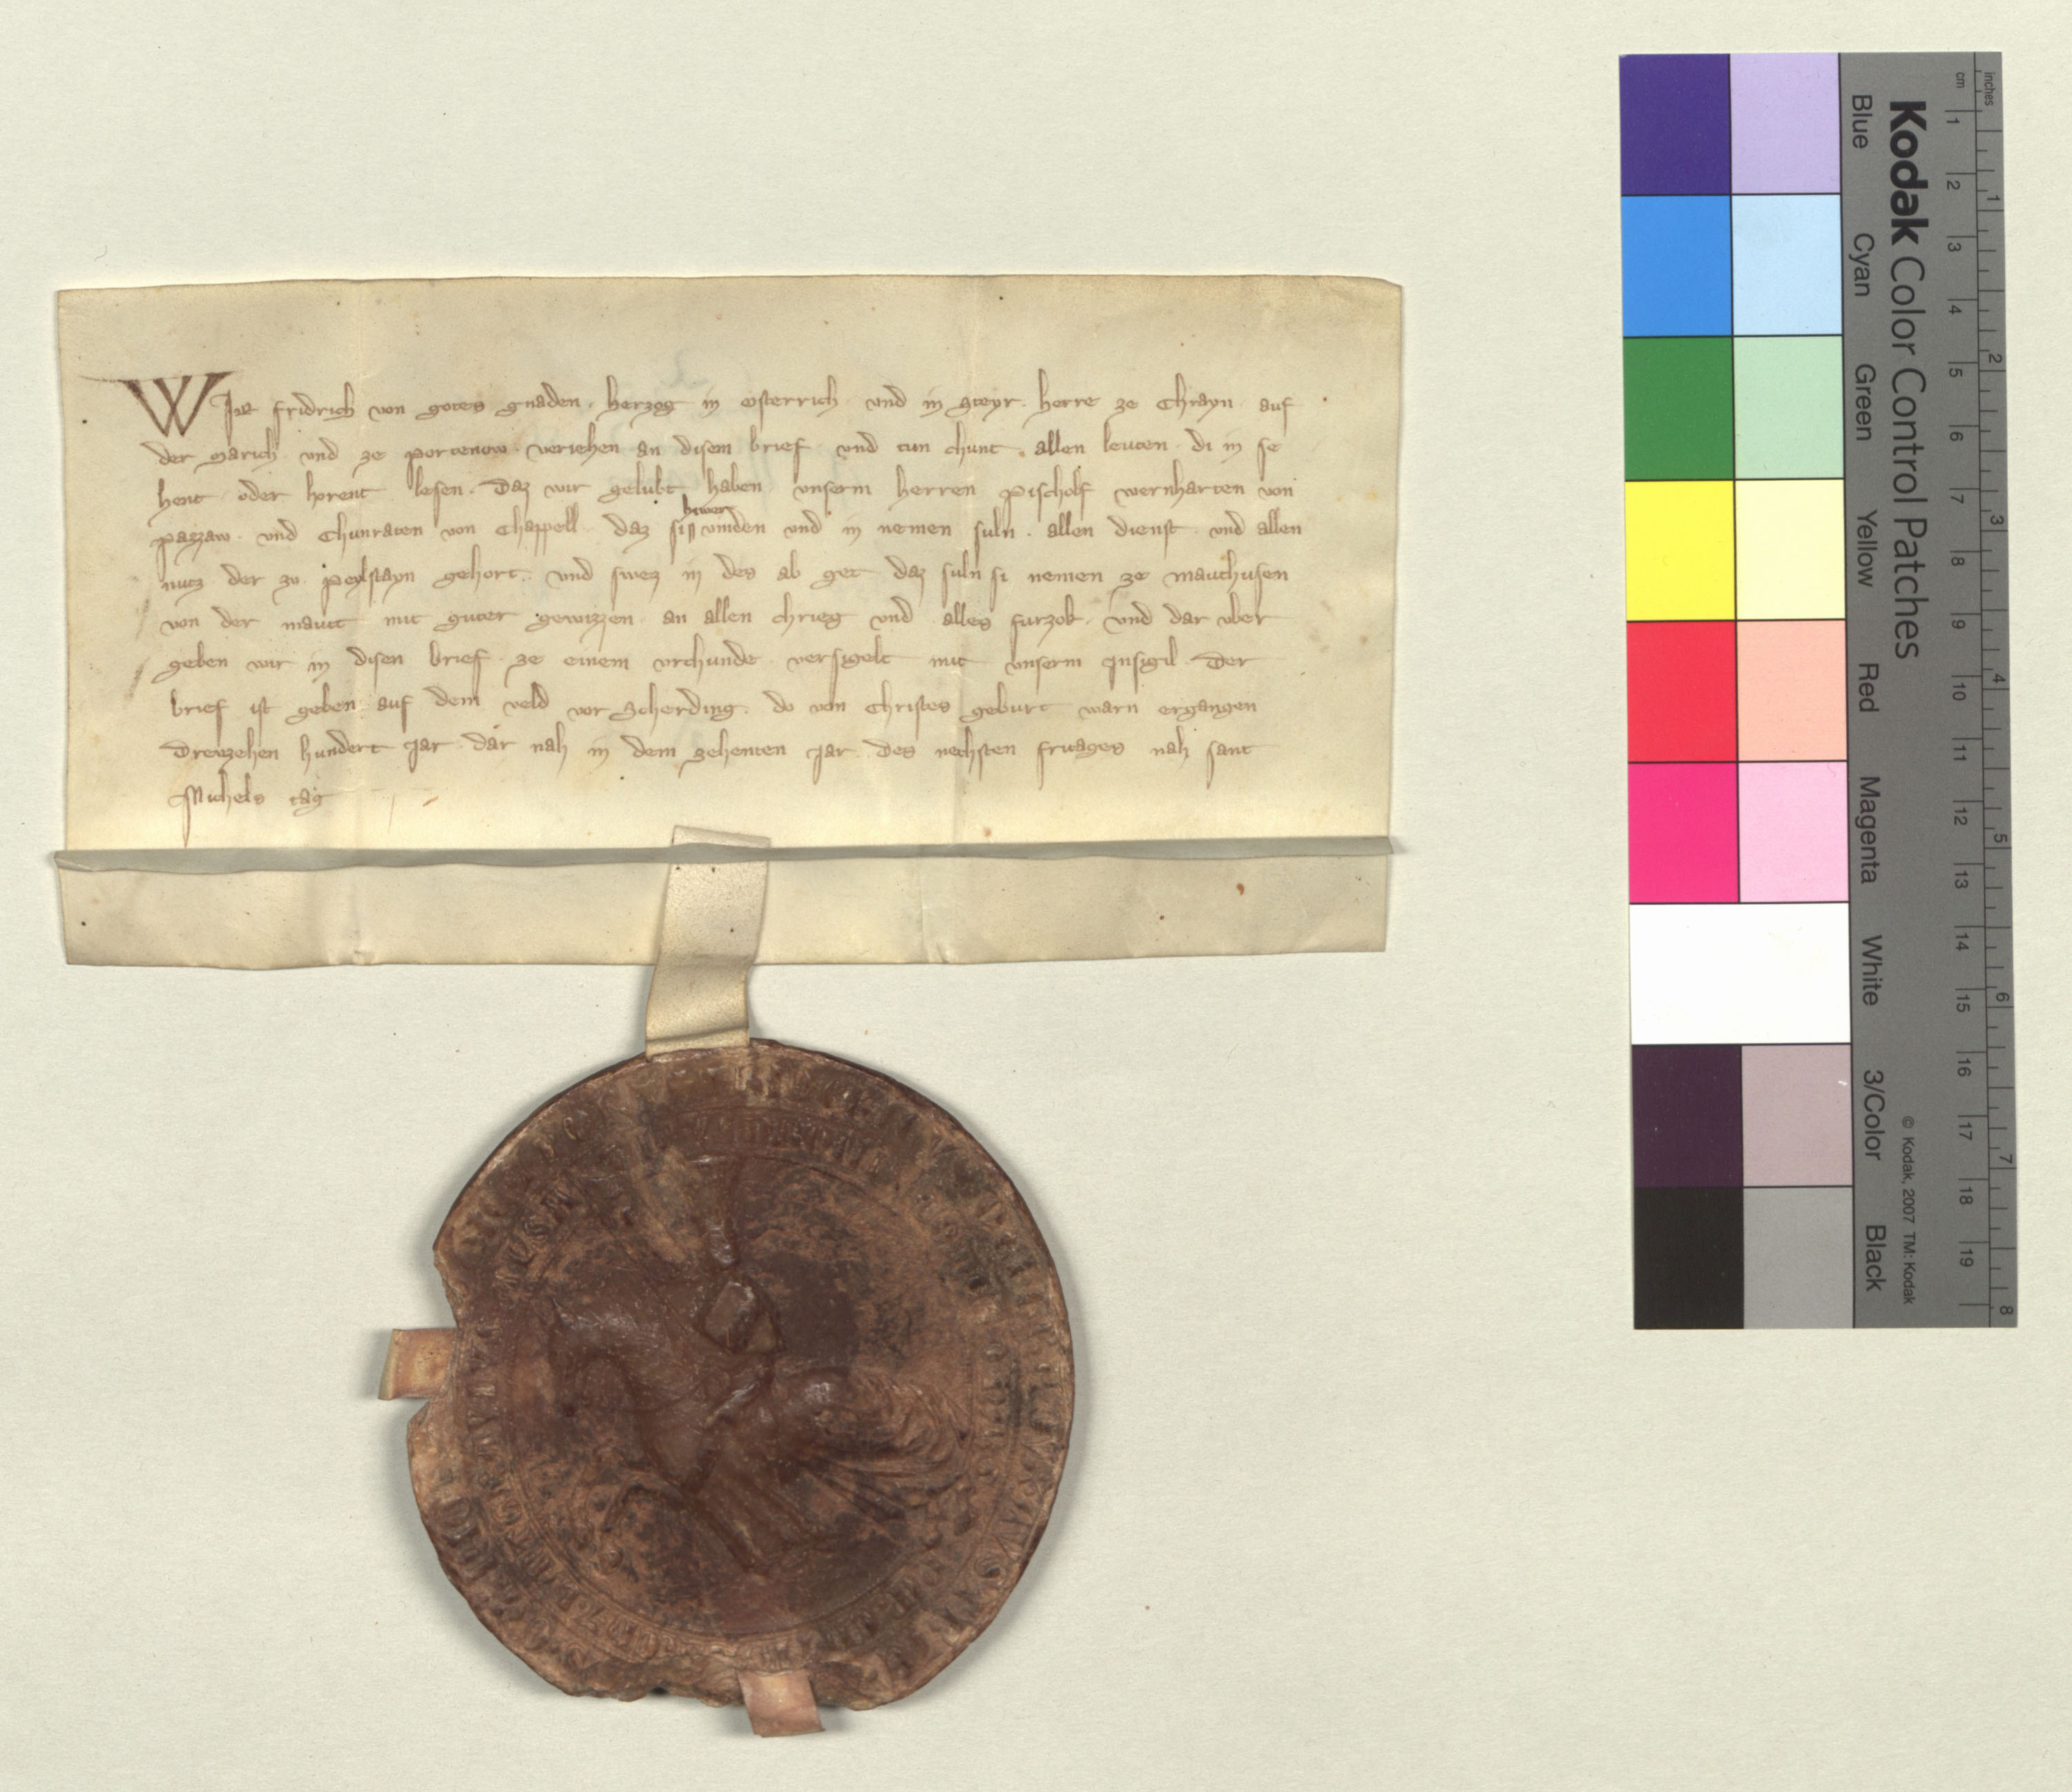 WIR fridrich von gotes gnaden . herzog in osterrich und in steyr . herre ze Chrayn auf
der March und ze portenow . veriehen an disem brief und tun chunt . allen leuten . di in se
hent oder horent lesen . Daz wir gelubt haben unserm herren Pischolf wernharten von
pazzaw . und Chunraten von Chappell . daz si hiwer vinden und in nemen suln . allen dienst . und allen
nutz der zu Peylstayn gehort . und swez in des ab get daz suln si nemen ze mauthusen
von der maut mit guter gewizzen . an allen chrieg und alles furzok . und dar uber
geben wir in disen brief ze einem urchunde versigelt mit unserm Insigil . Der
brief ist geben auf dem veld vor Scherding . do von Christes geburt warn ergangen
Drevzehen hundert Jar . dar nah in dem zehenten Jar . des nechsten fritages nah sant
Michels tag
Kodak Color Control Patches
Blue Cyan Green Yellow Red Magenta White 3/Color Black
inches 1 2 3 4 5 6 7 8
cm 1 2 3 4 5 6 7 8 9 10 11 12 13 14 15 16 17 18 19
© Kodak, 2007 TM: Kodak